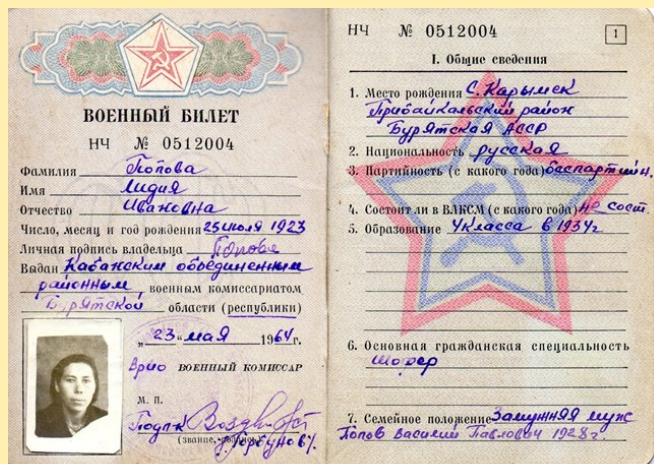 ВОЕННЫЙ БИЛЕТ
НЧ № 0512004
Фамилия Попова
Имя Лидия
Отчество Ивановна
Число, месяц и год рождения 25 июля 1923
Личная подпись владельца Попова
Выдан Кабанским объединенным
районным военным комиссариатом
Бурятской области (республики)
„23„ мая 1964 г.
Врио ВОЕННЫЙ КОМИССАР
М. П.
Подп-к
(звание, подпись)
Горбунов/.
НЧ № 0512004
1
I. Общие сведения
1. Место рождения с. Карымск
Прибайкальский район
Бурятская АССР
2. Национальность русская
3. Партийность (с какого года) беспартийн.
4. Состоит ли в ВЛКСМ (с какого года) не сост.
5. Образование 4 класса в 1934 г.
6. Основная гражданская специальность
шофер
7. Семейное положение Замужняя муж
Попов Василий Павлович 1928 г.